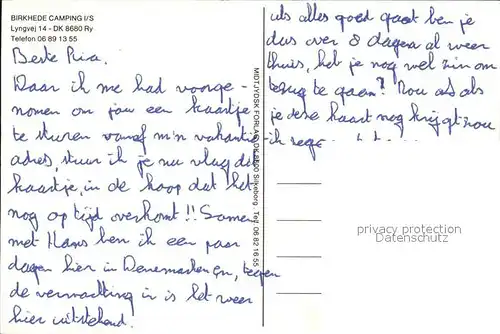 BIRKHEDE CAMPING I/S
Lyngvej 14 - DK 8680 Ry
Telefon 06 89 13 55
Beste Ria.
Daar ik me had voorge-
nomen om jou een kaartje
te sturen vanaf m'n vakantie
adres, stuur ik je nu vlug dit
kaartje, in de hoop dat het
nog op tijd overkomt!! Samen
met Hans ben ik een paar
dagen hier in Denemarken en, tegen
de verwachting in is het weer
hier uitstekend.
als alles goed gaat ben je
dus over 8 dagen al weer
thuis, heb je nog wel zin om
terug te gaan? Nou als als
je deze kaart nog krijgt zou
ik zeggen
MIDTJYDSK FORLAG DK 8600 Silkeborg Tel. 06 82 16 55
privacy protection
Datenschutz